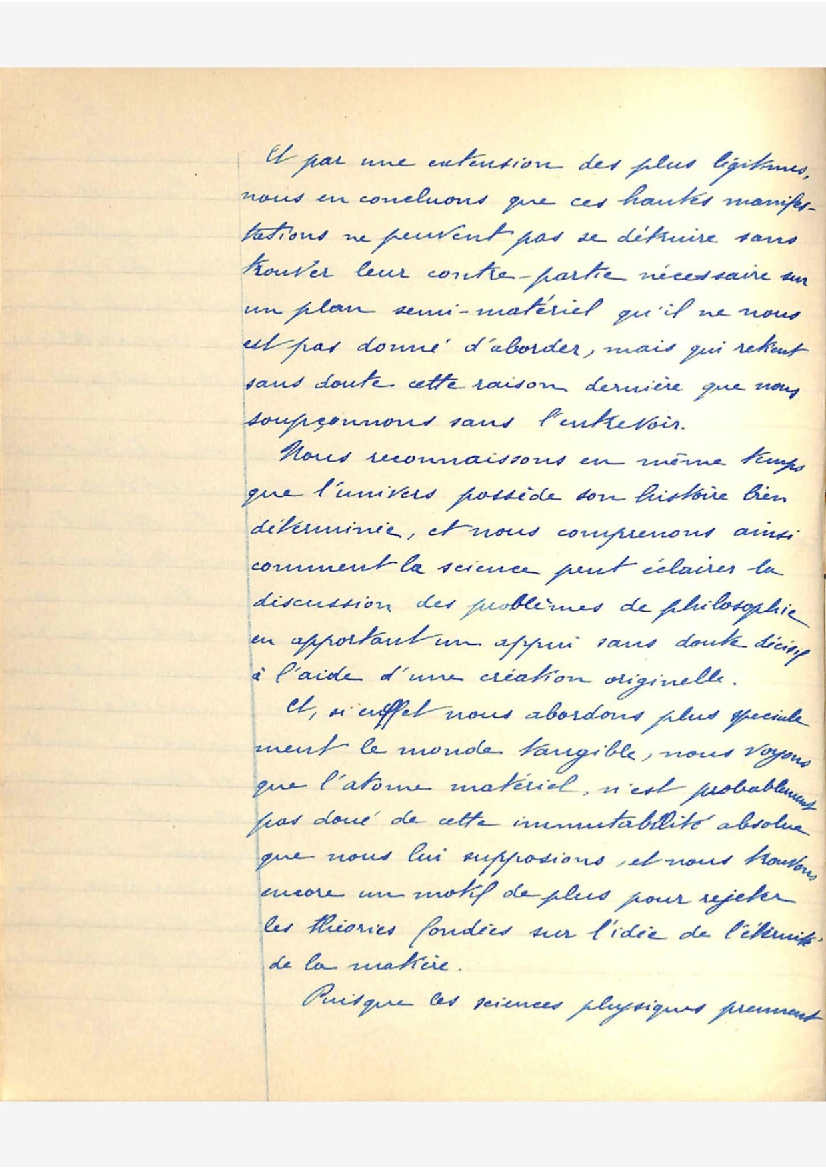 Et par une extension des plus légitimes,
nous en concluons que ces hautes manifes-
tations ne peuvent pas se détruire sans
trouver leur contre-partie nécessaire sur
un plan semi-matériel qu'il ne nous
est pas donné d'aborder, mais qui retient
sans doute cette raison dernière que nous
soupçonnons sans l'entrevoir.
Nous reconnaissons en même temps
que l'univers possède son histoire bien
déterminée, et nous comprenons ainsi
comment la science peut éclairer la
discussion des problèmes de philosophie
en apportant un appui sans doute décisif
à l'aide d'une création originelle.
Et, si en effet nous abordons plus speciale
ment le monde tangible, nous voyons
que l'atome matériel, n'est probablement
pas doué de cette immutabilité absolue
que nous lui supposions, et nous trouvons
encore un motif de plus pour rejeter
les théories fondées sur l'idée de l'éternité
de la matière.
Puisque les sciences physiques prennent